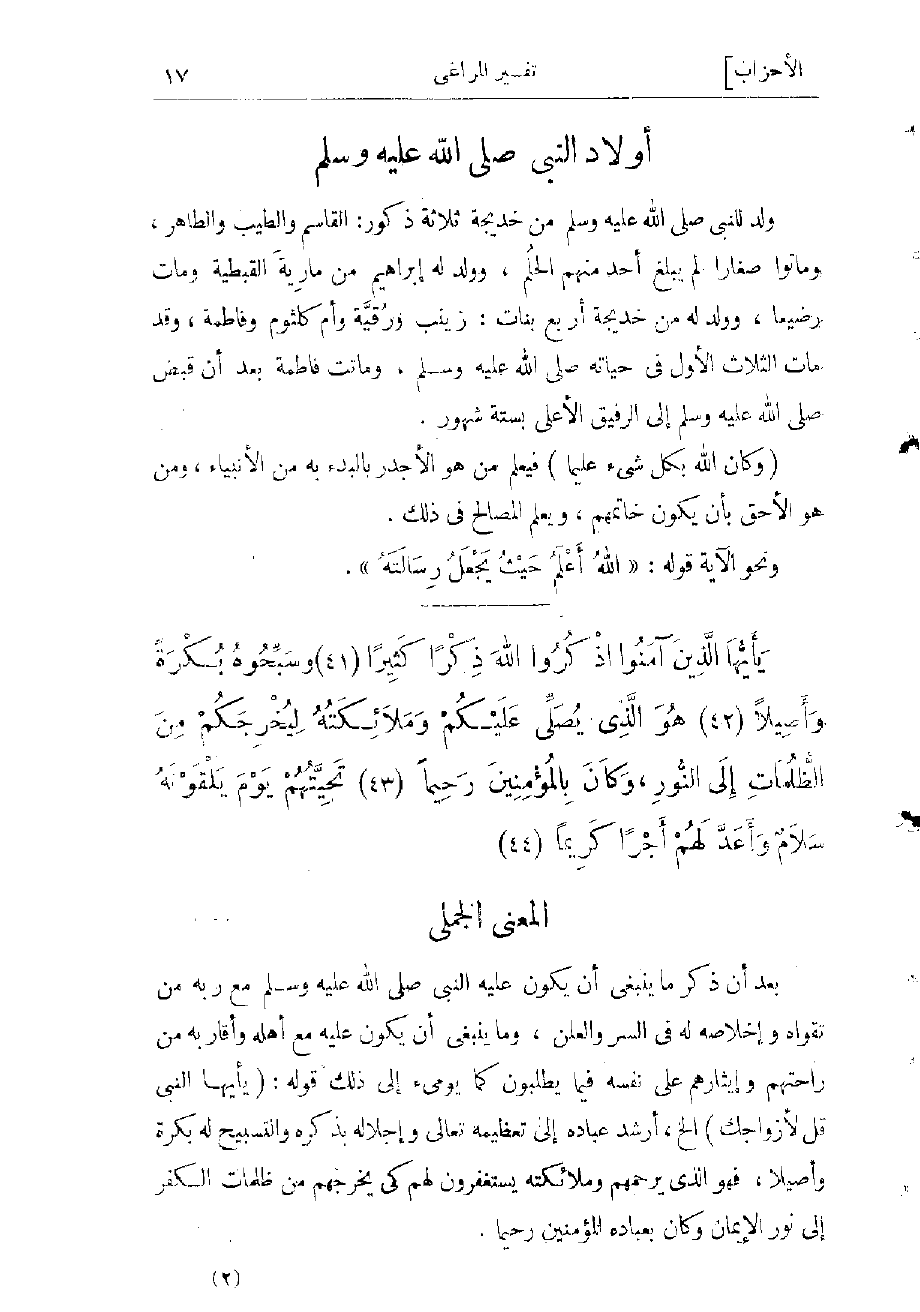 الأحزاب] تفسير المراغى ١٧
أولاد النبى صلى الله عليه وسلم
ولد للنبى صلى الله عليه وسلم من خديجة ثلاثة ذكور: القاسم والطيب والطاهر ،
وماتوا صغارا لم يبلغ أحد منهم الحلُم ، وولد له إبراهيم من مارية القبطية ومات
رضيعا ، وولد له من خديجة أربع بنات : زينب ورُقيَّة وأم كلثوم وفاطمة ، وقد
مات الثلاث الأول فى حياته صلى الله عليه وسلم ، وماتت فاطمة بعد أن قبض
صلى الله عليه وسلم إلى الرفيق الأعلى بستة شهور .
( وكان الله بكل شىء عليما ) فيعلم من هو الأجدر بالبدء به من الأنبياء ، ومن
هو الأحق بأن يكون خاتمهم ، ويعلم المصالح فى ذلك .
ونحو الآية قوله : « اللهُ أَعْلَمُ حَيْثُ يَجْعَلُ رِسَالَتَهُ » .
يَأَيُّهَا الَّذِينَ آمَنُوا اذْكُرُوا اللهَ ذِكْرًا كَثِيرًا (٤١) وسَبِّحُوهُ بُكْرَةً
وَأَصِيلاً (٤٢) هُوَ الَّذِى يُصَلِّى عَلَيْكُمْ وَمَلاَئِكَتُهُ لِيُخْرِجَكُمْ مِنَ
الظُّلُمَاتِ إِلَى النُّورِ ، وَكَانَ بِالْمُؤْمِنِينَ رَحِيماً (٤٣) تَحِيَّتُهُمْ يَوْمَ يَلْقَوْنَهُ
سَلاَمٌ وَأَعَدَّ لَهُمْ أَجْرًا كَرِيماً (٤٤)
المعنى الجملى
بعد أن ذكر ما ينبغى أن يكون عليه النبى صلى الله عليه وسلم مع ربه من
تقواه وإخلاصه له فى السر والعلن ، وما ينبغى أن يكون عليه مع أهله وأقاربه من
راحتهم وإيثارهم على نفسه فيما يطلبون كما يومىء إلى ذلك قوله : ( يأيها النبى
قل لأزواجك ) الخ ، أرشد عباده إلى تعظيمه تعالى وإجلاله بذكره والتسبيح له بكرة
وأصيلا ، فهو الذى يرحمهم وملائكته يستغفرون لهم كى يخرجهم من ظلمات الكفر
إلى نور الإيمان وكان بعباده المؤمنين رحيما .
(٢)